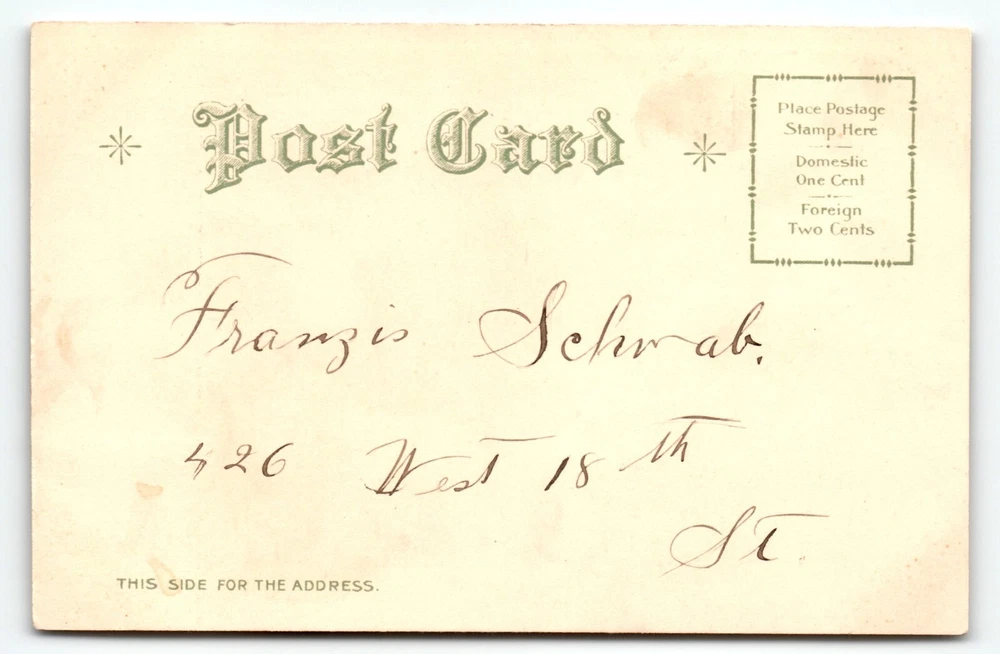 Post Card
Place Postage
Stamp Here
Domestic
One Cent
Foreign
Two Cents
Franzis Schwab.
426 West 18th
St.
THIS SIDE FOR THE ADDRESS.